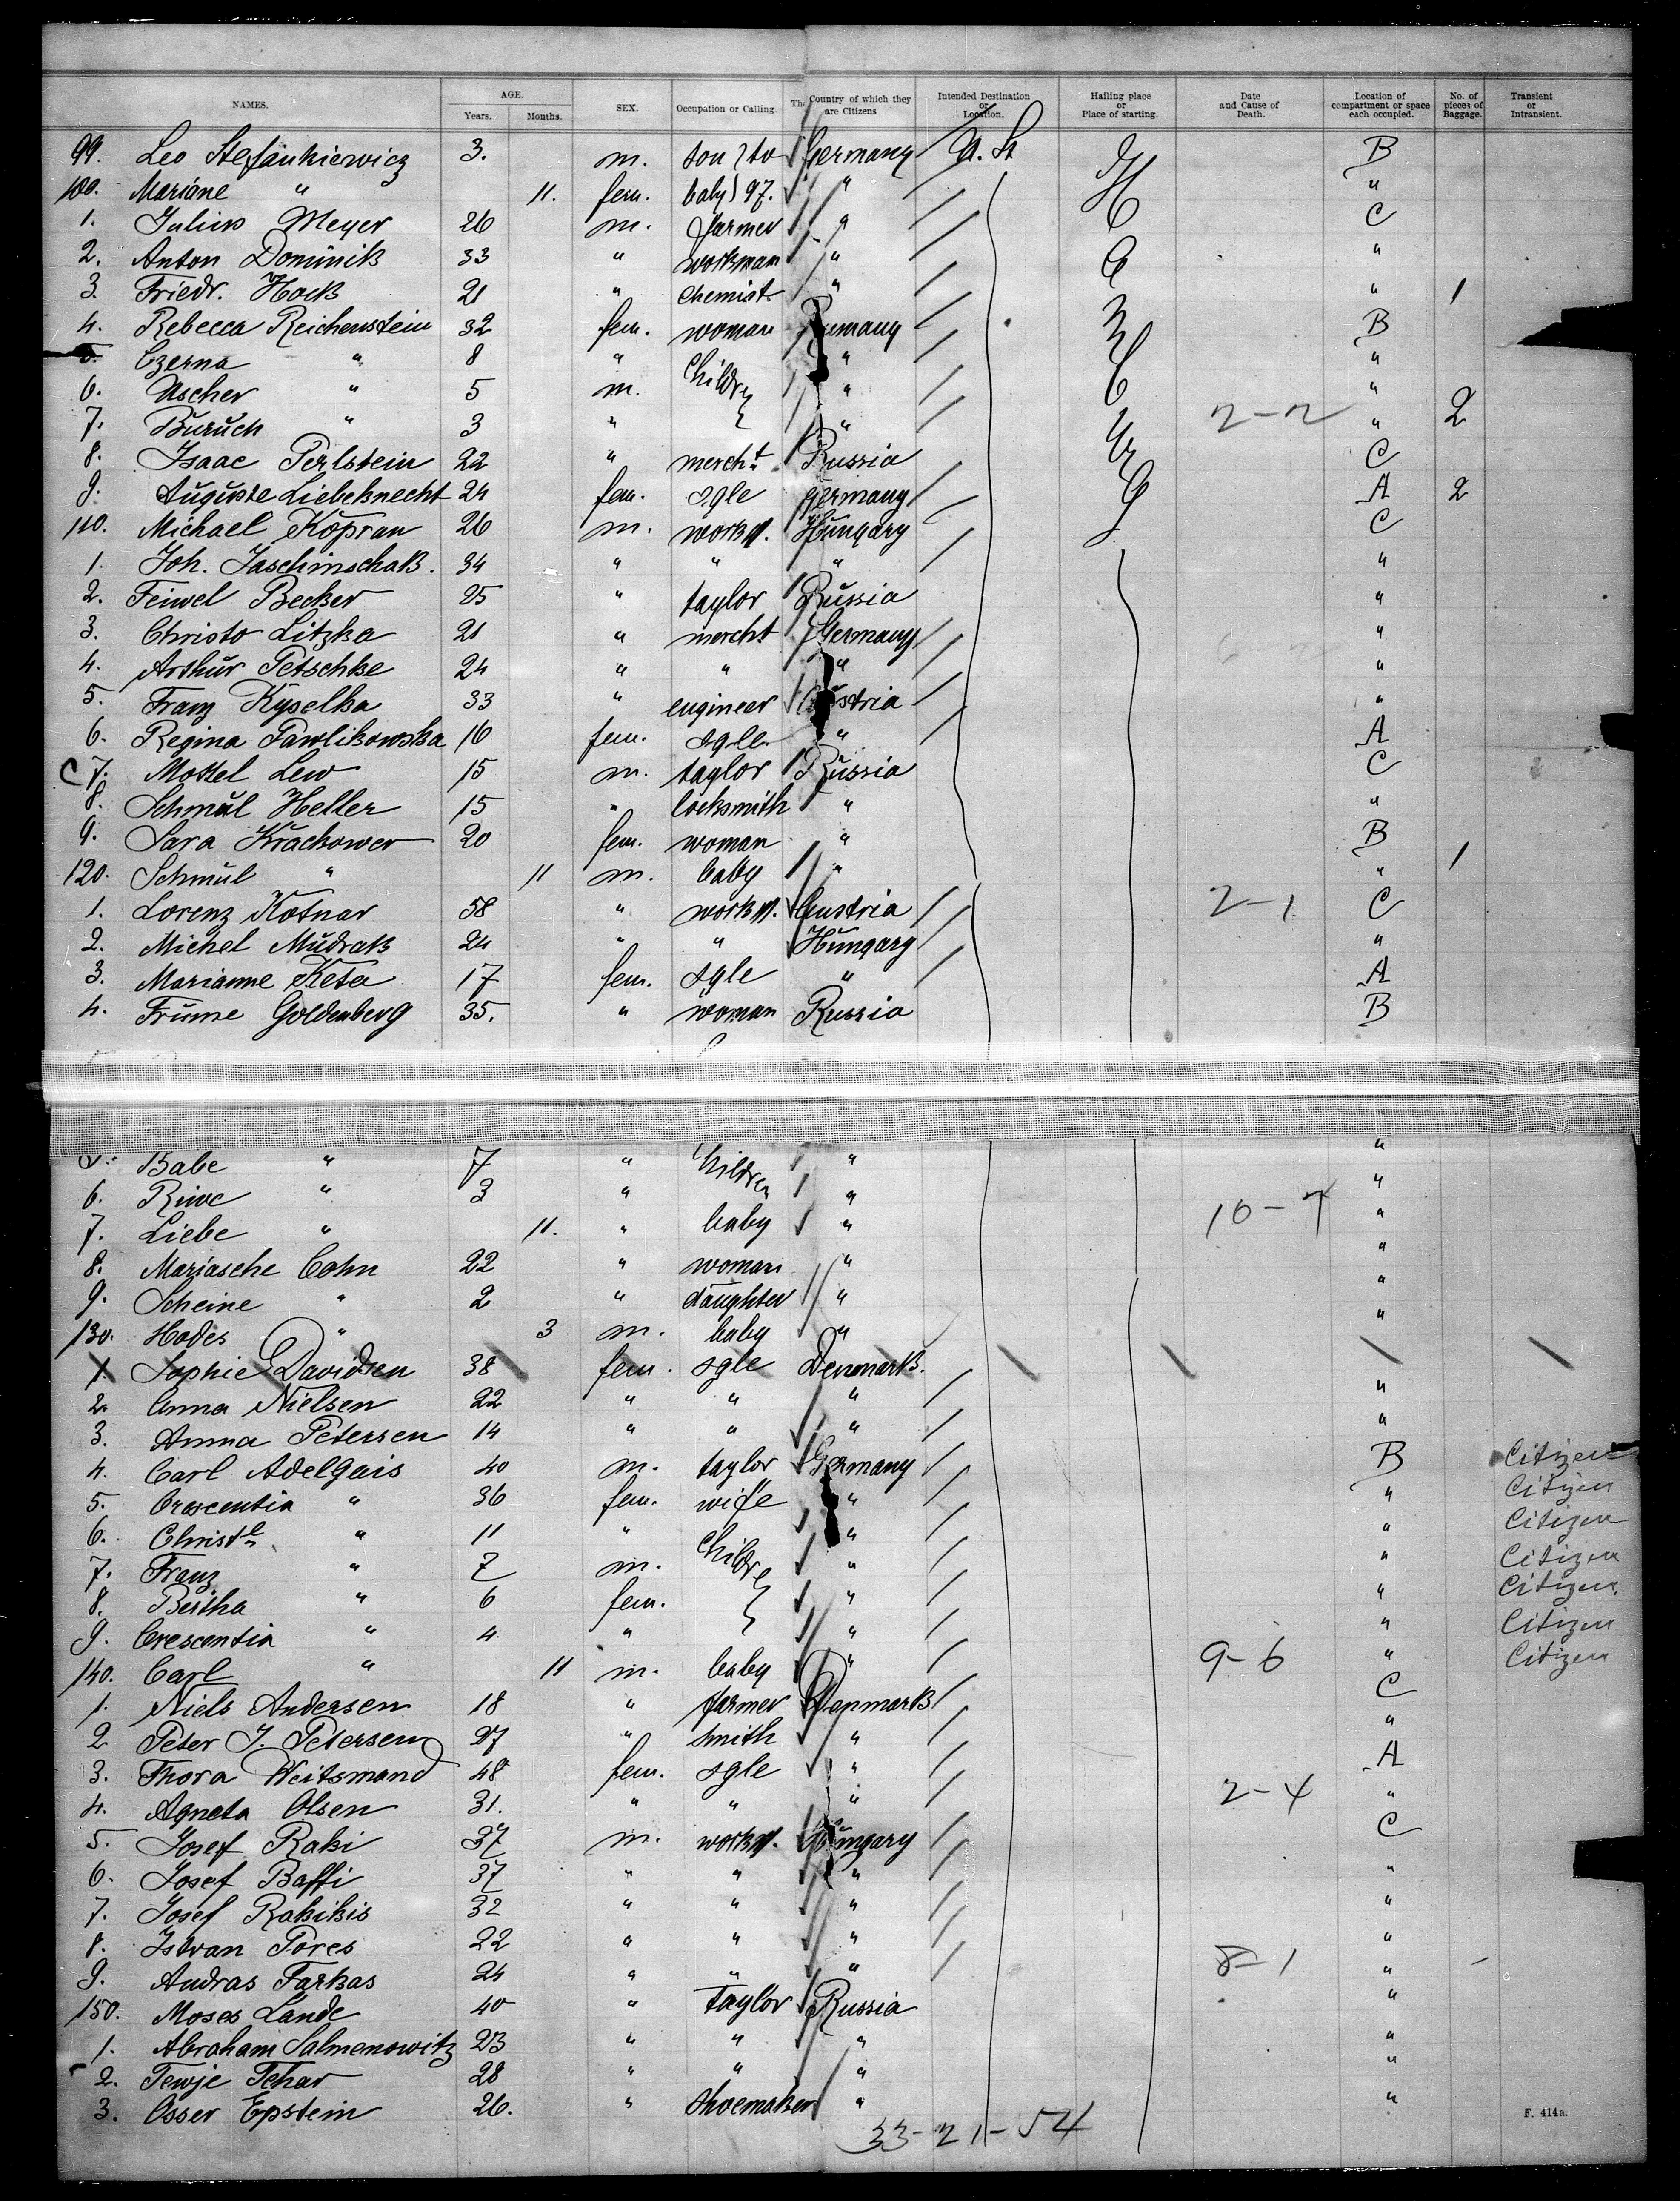 NAMES. AGE. Years. Months. SEX. Occupation or Calling. The Country of which they are Citizens Intended Destination or Location. Hailing place or Place of starting. Date and Cause of Death. Location of compartment or space each occupied. No. of pieces of Baggage. Transient or Intransient.
99. Leo Stefankiewicz 3. m. son } to Germany U. St B
100. Mariane " 11. fem. baby } 97. " "
1. Julius Meyer 26 m. farmer " C
2. Anton Dominik 33 " workman " "
3. Friedr. Hock 21 " chemist " " 1
4. Rebecca Reichenstein 32 fem. woman Rumany B
5. Czerna " 8 " Childr " "
6. Uscher " 5 m. " "
7. Buruch " 3 " " 2-2 " 2
8. Isaac Perlstein 22 " mercht Russia C
9. Auguste Liebeknecht 24 fem. sgle Germany A 2
110. Michael Kopran 26 m. workm. Hungary C
1. Joh. Jaschinschak. 34 " " " "
2. Feiwel Becker 25 " taylor Russia "
3. Christo Litzka 21 " mercht Germany "
4. Arthur Petschke 24 " " " "
5. Franz Kyselka 33 " engineer Austria "
6. Regina Pawlikowska 16 fem. sgle. " A
C 7. Mottel Lew 15 m. taylor Russia C
8. Schmul Heller 15 " locksmith " "
9. Sara Krachower 20 fem. woman " B
120. Schmul " 11 m. baby " " 1
1. Lorenz Kotnar 58 " workm. Austria 2-1 C
2. Michel Mudrak 24 " " Hungary "
3. Marianne Keta 17 fem. sgle " A
4. Frume Goldenberg 35. " woman Russia B
5. Babe " 7 " Children " "
6. Riwe " 3 " " "
7. Liebe " 11. " baby " 10-7 "
8. Mariasche Cohn 22 " woman " "
9. Scheine " 2 " daughter " "
130. Hodes " 3 m. baby " "
1. Sophie Davidsen 38 fem. sgle Denmark.
2. Anna Nielsen 22 " " " "
3. Anna Petersen 14 " " " "
4. Carl Adelgais 40 m. taylor Germany B Citizen
5. Crescentia " 36 fem. wife " " Citizen
6. Christe " 11 " Childre " " Citizen
7. Franz " 7 m. " " Citizen
8. Bertha " 6 fem. " " Citizen
9. Crescentia " 4 " " " Citizen
140. Carl " 11 m. baby " 9-6 " Citizen
1. Niels Andersen 18 " farmer Denmark C
2 Peter J. Petersen 27 " smith " "
3. Thora Weitsmand 48 fem. sgle " A
4. Agneta Olsen 31. " " " 2-4 "
5. Josef Raki 37 m. workm. Hungary C
6. Josef Baffi 37 " " " "
7. Josef Rakikis 32 " " " "
8. Istvan Pores 22 " " " "
9. Andras Farkas 24 " " " 8-1 "
150. Moses Lande 40 " Taylor Russia "
1. Abraham Salmenowitz 23 " " " "
2. Tewje Tchar 28 " " " "
3. Osser Epstein 26. " Shoemaker " "
33-21-54
F. 414a.